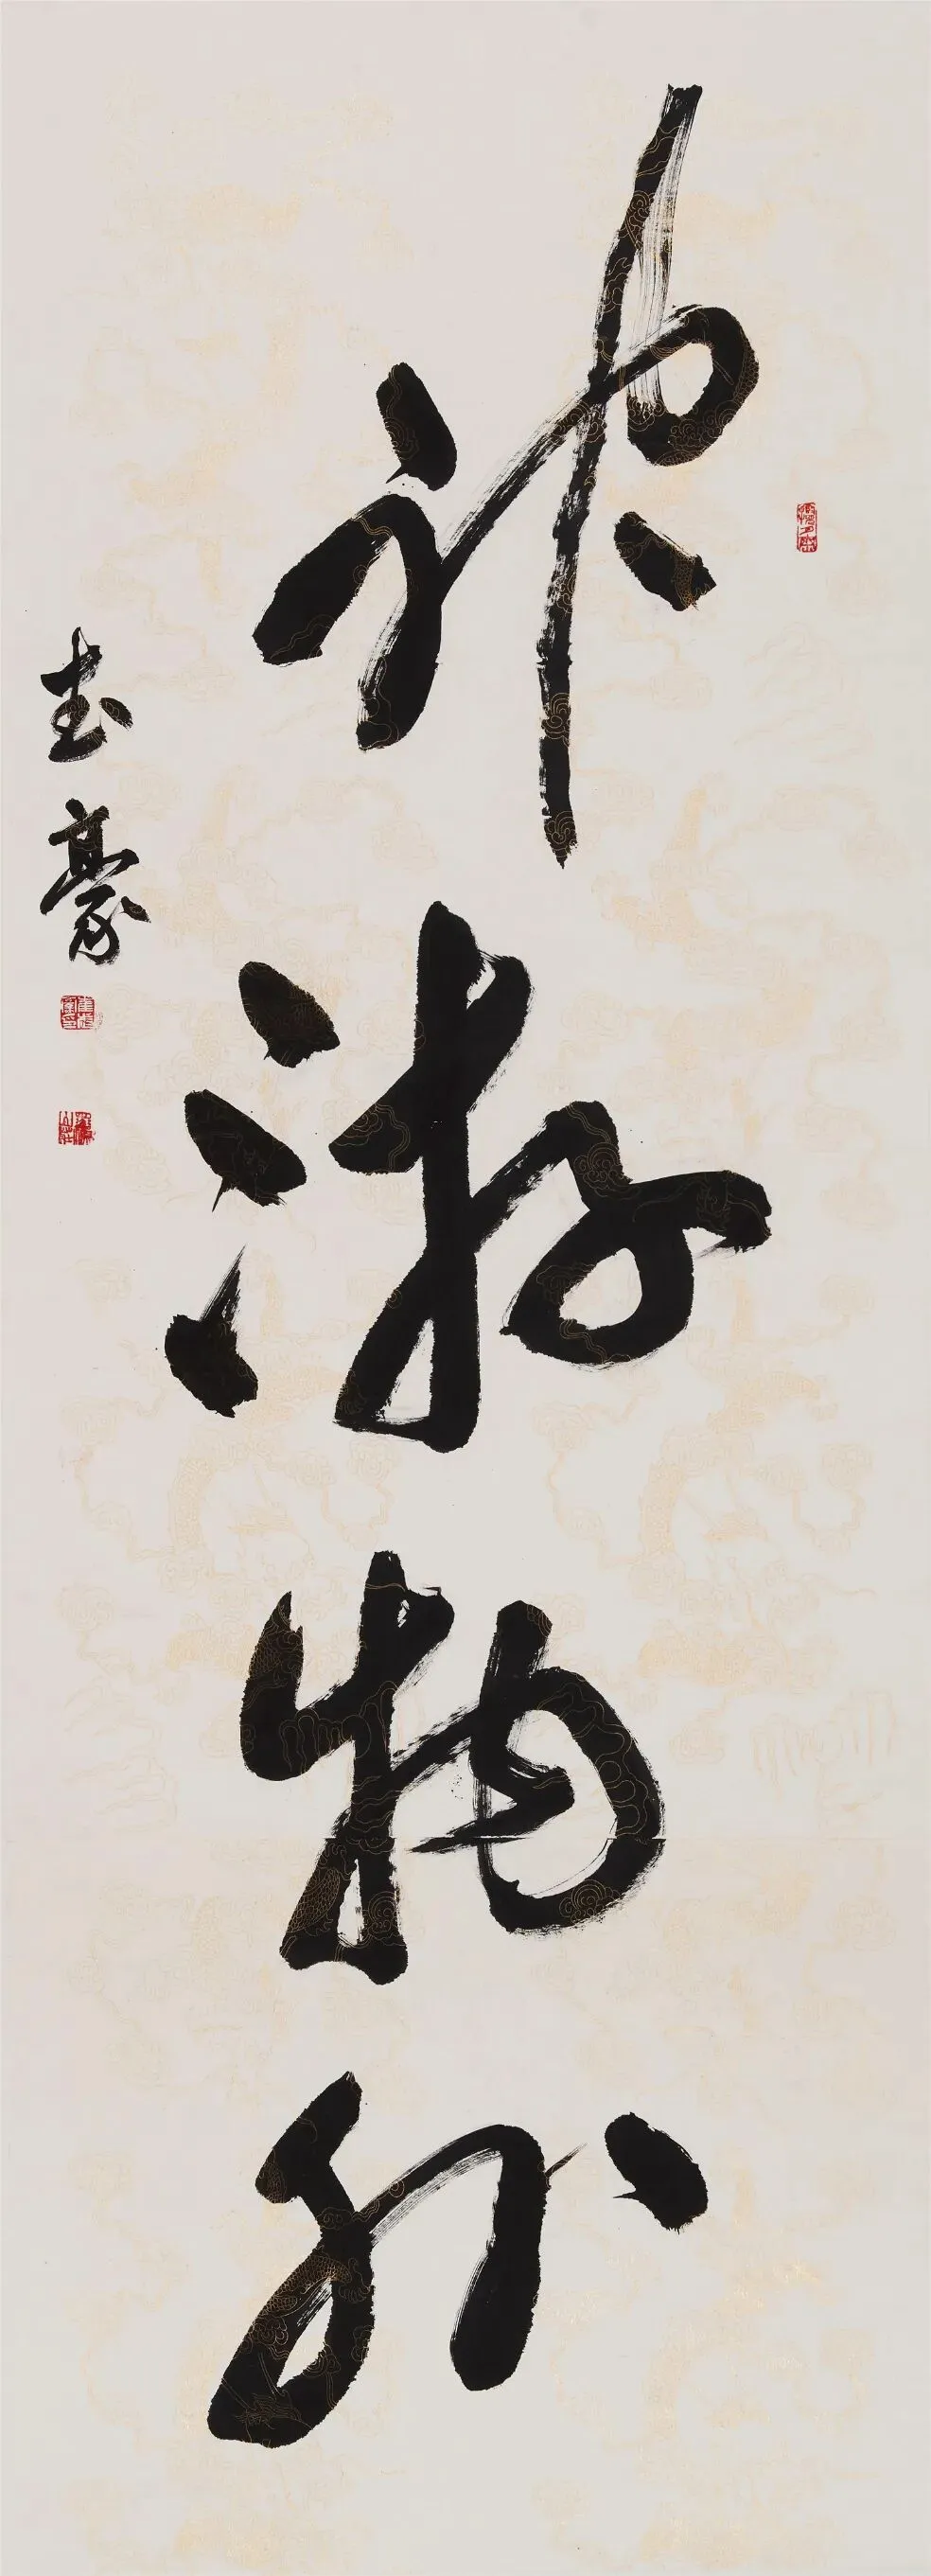 神游物外
志豪